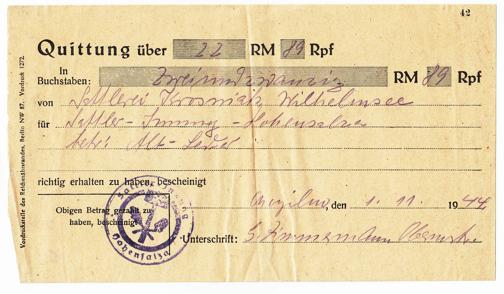 42
Quittung über 22 RM 89 Rpf
In Buchstaben: Zweiundzwanzig RM 89 Rpf
von Sattlerei Krosniak Wilhelmsee
für Sattler-Innung-Hohensalza
betr. Alt-Leder
richtig erhalten zu haben, bescheinigt
Argilm, den 1. 11. 1944
Obigen Betrag gezahlt zu haben, bescheinigt
Unterschrift: Zimmermann
Sattler-Innung Hohensalza
Vordruckstelle des Reichsnährstandes, Berlin NW 87. Vordruck 1272.